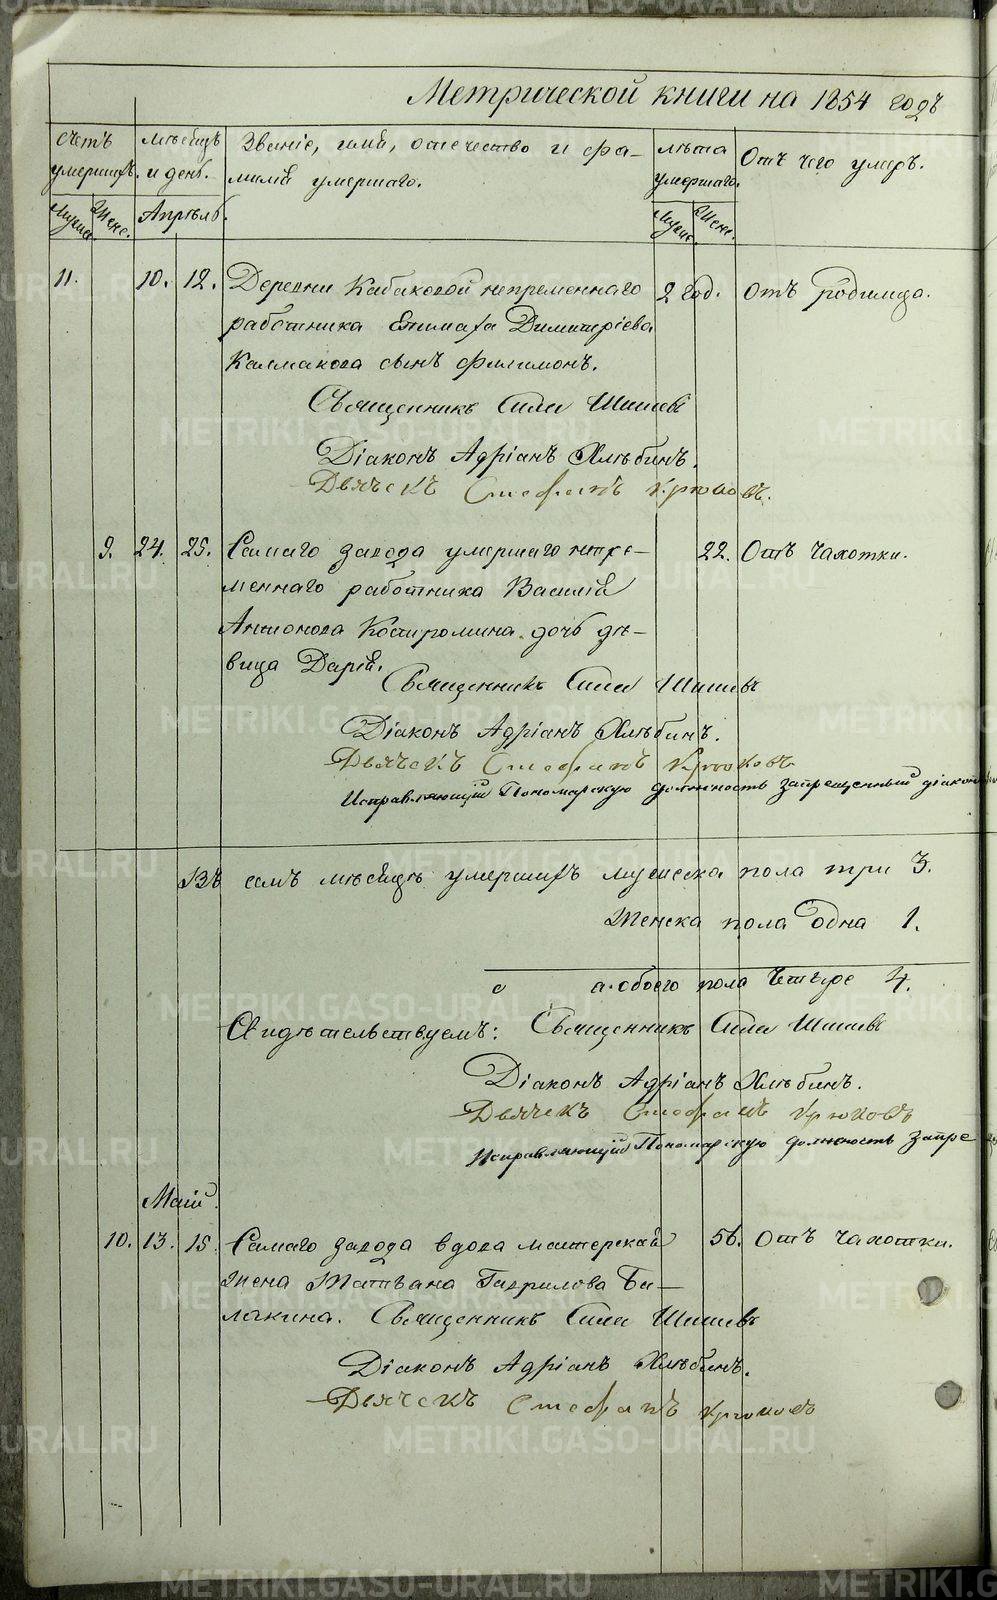 Метрической книги на 1854 годъ
счетъ умершихъ. мѣсяцъ и день. Званіе, имя, отечество и фамилія умершаго. лѣта умершаго. Отъ чего умеръ.
Мужеск. Женс. Апрѣль. Мужес. Женс.
11. 10. 12. Деревни Кабаковой непременнаго 2 год. отъ родимца.
работника Димитріева
Калмакова сынъ Филимонъ.
Священникъ Сила Шишевъ
Діаконъ Адріанъ Хлѣбинъ.
Дьячекъ Стефанъ Крюковъ.
9. 24. 25. Самаго завода умершаго непре- 22. Отъ чахотки.
меннаго работника Василія
Антонова Костромина дочь дѣ-
вица Дарія.
Священникъ Сила Шишевъ
Діаконъ Адріанъ Хлѣбинъ.
Дьячекъ Стефанъ Крюковъ
Исправляющій Пономарскую должность запрещенный діаконъ
Въ семъ мѣсяцѣ умершихъ мужеска пола три 3.
Женска пола одна 1.
а обоего пола четыре 4.
Свидѣтельствуемъ: Священникъ Сила Шишевъ
Діаконъ Адріанъ Хлѣбинъ.
Дьячекъ Стефанъ Крюковъ
Исправляющій Пономарскую должность запре
Май.
10. 13. 15. Самаго завода вдова мастерская 56. отъ чахотки.
жена Татьяна Гаврилова Ба-
лакина. Священникъ Сила Шишевъ
Діаконъ Адріанъ Хлѣбинъ.
Дьячекъ Стефанъ Крюковъ
METRIKI.GASO-URAL.RU